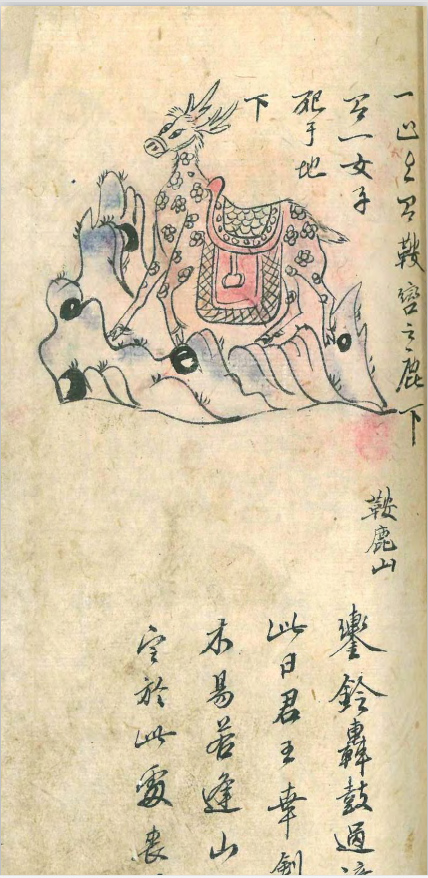 一山上有鞍轡之鹿下
有一女子
死于地
下
鞍鹿山
鑾鈴轟鼓過
此日君王幸劍
木易若逢山
定於此處喪